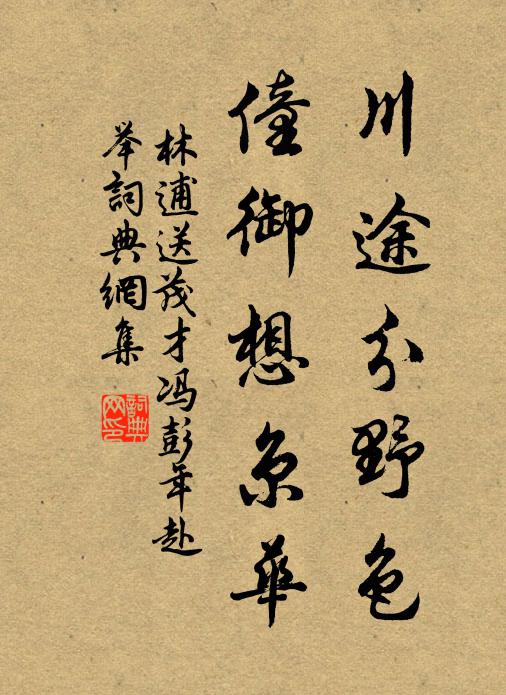 川途分野色
僮御想京華
林逋送茂才冯彭年赴
举詞典網集
詞典
网印